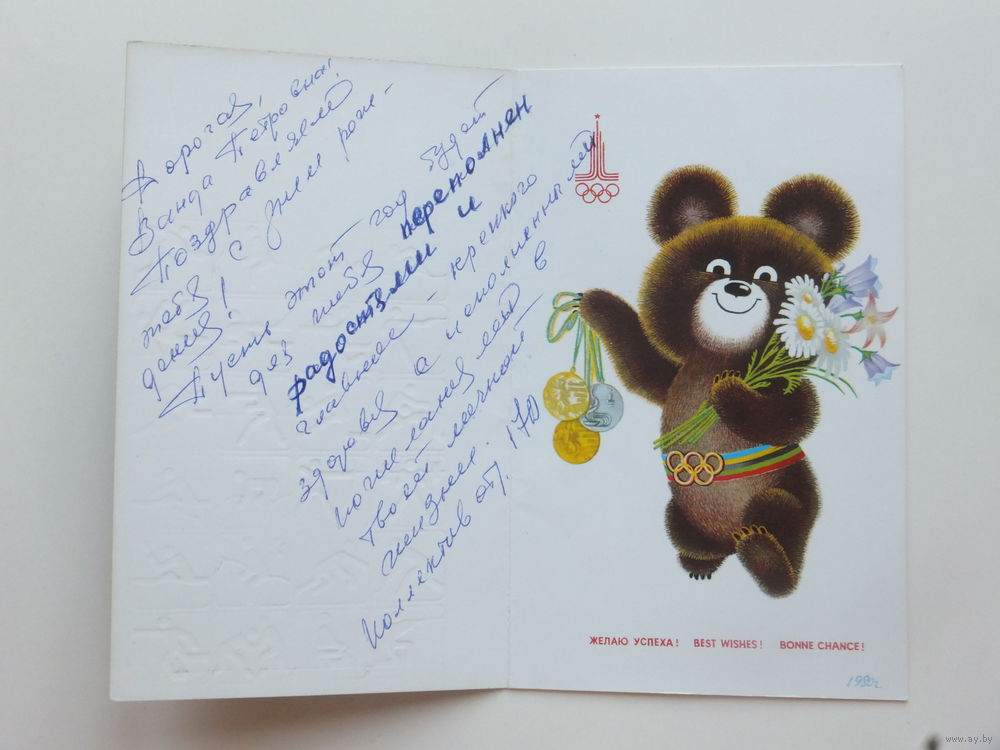 Дорогая,
Ванда Петровна!
Поздравляем
тебя с днем рож-
дения!
Пусть этот год будет
для тебя переполнен
радостями и
главное - крепкого
здоровья а
в
твоей личной
жизни.
Коллектив от. 170
ЖЕЛАЮ УСПЕХА! BEST WISHES! BONNE CHANCE!
1980г
www.ay.by